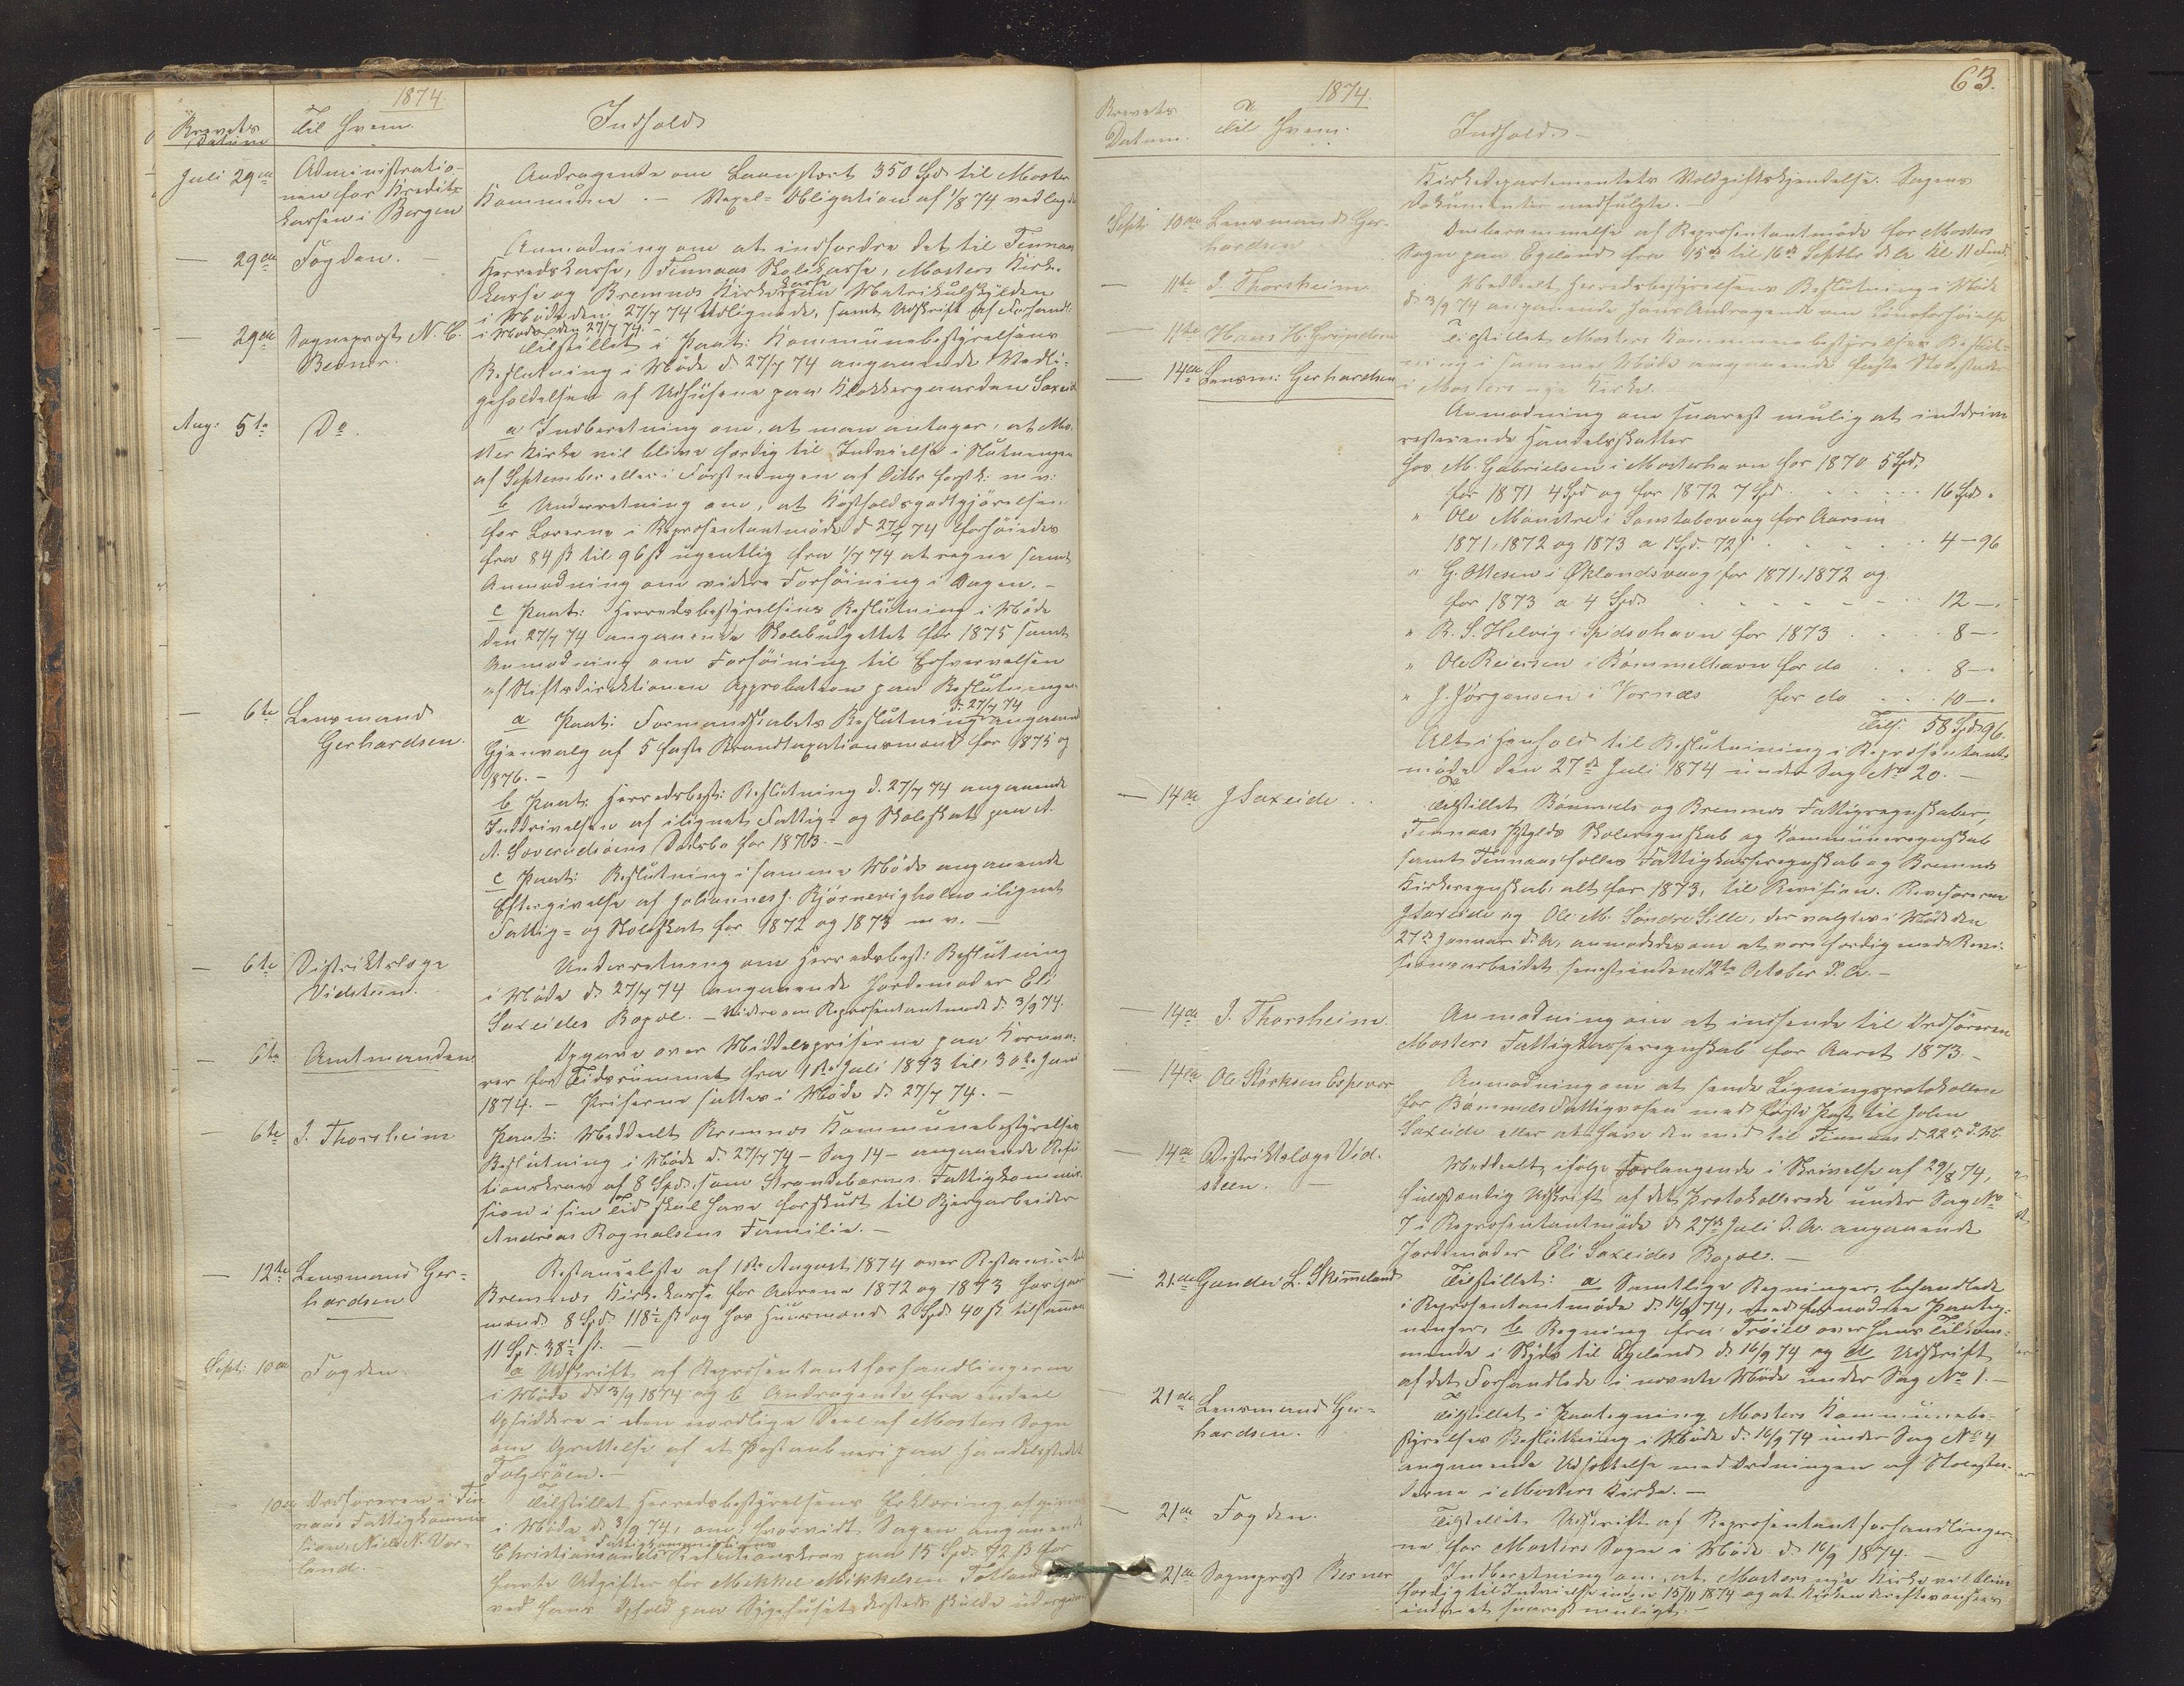 1874
Brevets Datum
Til Hvem.
Indhold
Juli 29de
Administratio-
nen for Kredit-
kassen i Bergen
Andragende om Laan stort 350 Spd. til Moster
Kommune. — Vexel-Obligation af 1/8 74 vedlagdes
— 29de Fogden. —
Anmodning om at indfordre det til Finnaas
Herredskasse, Finnaas Skolekasse, Mosters Kirke-
kasse og Bremnes Kirkekasse paa Matrikulskylden
i Møde den 27/7 74 Udlignede, samt Udskrift af Forhandl:
i Møde den 27/7 74. —
— 29de Sogneprest N. C.
Berner.
Tilstillet i Paat: Kommunebestyrelsens
Beslutning i Møde d. 27/7 74 angaaende Vedli-
geholdelsen af Udhusene paa Klokkergaarden Saxeid
Aug: 5te Do.
a Indberetning om, at man antager, at Mo-
ster Kirke vil blive færdig til Indvielse i Slutningen
af September eller i Førstningen af Octbr førstk: m. v:
b Underretning om, at Kostholdsgodtgjørelsen
for Lærerne i Repræsentantmøde d. 27/7 74 forhøiedes
fra 84 ß til 96 ß ugentlig fra 1/7 74 at regne samt
Anmodning om videre Forføining i Sagen. —
c Paat: Herredsbestyrelsens Beslutning i Møde
den 27/7 74 angaaende Skolebudgettet for 1875 samt
Anmodning om Forføining til Erhvervelsen
af Stiftsdirektionens Approbation paa Beslutningen.
— 6te Lensmand
Gerhardsen.
a Paat: Formandskabets Beslutning d. 27/7 74 angaaende
Gjenvalg af 5 faste Brandtaxationsmænd for 1875 og
1876. —
b Paat: Herredsbest: Beslutning d. 27/7 74 angaaende
Inddrivelsen af ilignet Fattig- og Skoleskat paa A.
A. for 1873. —
c Paat: Beslutning i samme Møde angaaende
Eftergivelse af Johannes J. Bjørnevigholms ilignet
Fattig- og Skoleskat for 1872 og 1873 m. v. —
— 6te Distriktslæge
Vidsteen.
Underretning om Herredsbest: Beslutning
i Møde d. 27/7 74 angaaende Jordemoder Eli
Saxeides Bopæl. — Repræsentantmøde d. 3/9 74.
— 6te Amtmanden
Opgave over Middelspriserne paa Kornva-
rer for Tidsrummet fra 1ste Juli 1873 til 30te Juni
1874. — Priserne sattes i Møde d. 27/7 74. —
— 6te J. Thorsheim
Paat: Meddeelt Bremnes Kommunebestyrelses
Beslutning i Møde d. 27/7 74 — Sag 14 — angaaende Refu-
tionskrav af 8 Spd. som Strandebarms Fattigkommis-
sion i sin Tid skal have forskudt til Bjergarbeider
Andreas Rognalsens Familie. —
— 12te Lensmand Ger-
hardsen
Restanceliste af 1ste August 1874 over Restancer til
Bremnes Kirkekasse for Aarene 1872 og 1873 hos Gaard-
mænd 8 Spd. 118½ ß og hos Huusmænd 2 Spd 40 ß tilsammen
11 Spd. 38½ ß. —
Sept: 10de Fogden.
a Udskrift af Repræsentantforhandlingerne
i Møde d. 3/9 1874 og b Andragende fra endeel
Opsiddere i den nordlige Deel af Mosters Sogn
om Oprettelse af et Postaabneri paa Handelsstedet
Folgerøen. —
10de Ordføreren i Fin-
naas Fattigkommis-
sion, Niels N. Vor-
land.
Tilstillet Herredsbestyrelsens Erklæring afgiven
i Møde d. 3/9 74, om, hvorvidt Sagen angaaende
Christiansands Fattigkommissions Refutionskrav paa 15 Spd. 72 ß for
havte Udgifter for Mikkel Mikkelsen Totland
ved hans Ophold paa Sygehuset dersteds skulde
63.
1874.
Brevets
Datum.
Til Hvem.
Indhold. —
Kirkedepartementets Voldgiftskjendelse. Sagens
Dokumenter medfulgte. —
Sept: 10de Lensmand Ger-
hardsen
Omberammelse af Repræsentantmøde for Mosters
Sogn paa Egeland fra 15de til 16de Septbr d. A. Kl. 11 Form:
— 11te J. Thorsheim
Meddeelt Herredsbestyrelsens Beslutning i Møde
d. 3/9 74 angaaende hans Andragende om Lønsforhøielse
— 11te Hans H. Grinden
Tilstillet Mosters Kommunebestyrelses Beslut-
ning i samme Møde angaaende faste Stolestader
i Mosters nye Kirke.
— 14de Lensm: Gerhardsen
Anmodning om snarest mulig at inddrive
resterende Handelsskatter
hos M. Gabrielsen i Mosterhavn for 1870 5 Spd,
for 1871 4 Spd og for 1872 7 Spd . . . 16 Spd. "
" Ole Monstre i Sønstabøvaag for Aarene
1871, 1872 og 1873 a 1 Spd. 72 ß . . . 4 — 96
" G. Ottesen i Øklandsvaag for 1871, 1872 og
for 1873 a 4 Spd. . . . 12 — "
" R. S. Helvig i Spidsøhavn for 1873 . . . 8 — "
" Ole Reiersen i Bømmelhavn for do . . . 8 — "
" J. Jørgensen i Vornæs for do . . . 10 — "
Tils: 58 Spd 96.
Alt i Henhold til Beslutning i Repræsentant-
møde den 27de Juli 1874 under Sag No 20. —
— 14de J Saxeide . .
Tilstillet Bømmels og Bremnes Fattigregnskaber,
Finnaas Pstglds Skoleregnskab og Kommuneregnskab
samt Finnaas fælles Fattigkasseregnskab og Bremnes
Kirkeregnskab, alt for 1873, til Revision. Revisorerne
J Saxeide og Ole M. Søndre Lille, der valgtes i Møde den
27de Januar d. A. anmodedes om at være færdig med Revi-
sionsarbeidet senest inden 12te October d. A. —
— 14de J. Thorsheim.
Anmodning om at indsende til Ordføreren
Mosters Fattigkasseregnskab for Aaret 1873. —
— 14de Ole Størksen Espevær
Anmodning om at sende Ligningsprotokollen
for Bømmels Fattigvæsen med første Post til John
Saxeide eller at have den med til Finnaas d. 22de d. M.
— 14de Distriktslæge Vid-
steen. —
Meddeelt, ifølge Forlangende i Skrivelse af 29/8 74,
fuldstændig Udskrift af det Protokollerede under Sag No
7 i Repræsentantmøde d. 27de Juli d. A. angaaende
Jordemoder Eli Saxeides Bopæl. —
— 21de Gunder L. Skimmeland
Tilstillet: a Samtlige Regninger, behandlede
i Repræsentantmøde d. 16/9 74, med fornødne Paateg-
ninger, b Regning fra Trøite over hans Tilkom-
mende i Skyds til Egeland d. 16/9 74 og c Udskrift
af det Forhandlede i nævnte Møde under Sag No 1. —
21de Lensmand Ger-
hardsen.
Tilstillet i Paategning Mosters Kommunebe-
styrelses Beslutning i Møde d. 16/9 74 under Sag No 4
angaaende Udsættelse med Ordningen af Stolesta-
derne i Mosters Kirke. —
— 21de Fogden.
Tilstillet Udskrift af Repræsentantforhandlinger-
ne for Mosters Sogn i Møde d. 16/9 1874. —
— 21de Sogneprest Berner
Indberetning om, at Mosters nye Kirke vil blive
færdig til Indvielse inden 15/11 1874 og at Kirken
indviet snarest muligt. —